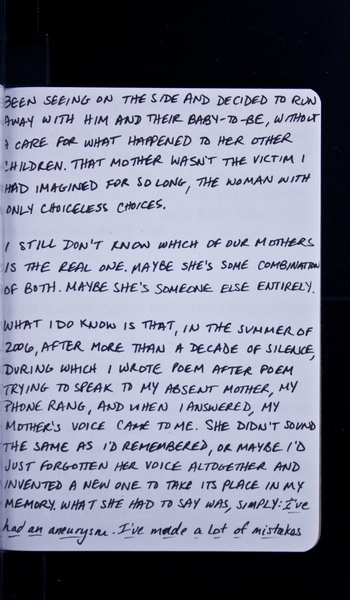 BEEN SEEING ON THE SIDE AND DECIDED TO RUN
AWAY WITH HIM AND THEIR BABY-TO-BE, WITHOUT
A CARE FOR WHAT HAPPENED TO HER OTHER
CHILDREN. THAT MOTHER WASN'T THE VICTIM I
HAD IMAGINED FOR SO LONG, THE WOMAN WITH
ONLY CHOICELESS CHOICES.
I STILL DON'T KNOW WHICH OF OUR MOTHERS
IS THE REAL ONE. MAYBE SHE'S SOME COMBINATION
OF BOTH. MAYBE SHE'S SOMEONE ELSE ENTIRELY.
WHAT I DO KNOW IS THAT, IN THE SUMMER OF
2006, AFTER MORE THAN A DECADE OF SILENCE,
DURING WHICH I WROTE POEM AFTER POEM
TRYING TO SPEAK TO MY ABSENT MOTHER, MY
PHONE RANG, AND WHEN I ANSWERED, MY
MOTHER'S VOICE CAME TO ME. SHE DIDN'T SOUND
THE SAME AS I'D REMEMBERED, OR MAYBE I'D
JUST FORGOTTEN HER VOICE ALTOGETHER AND
INVENTED A NEW ONE TO TAKE ITS PLACE IN MY
MEMORY. WHAT SHE HAD TO SAY WAS, SIMPLY: I've
had an aneurysm. I've made a lot of mistakes